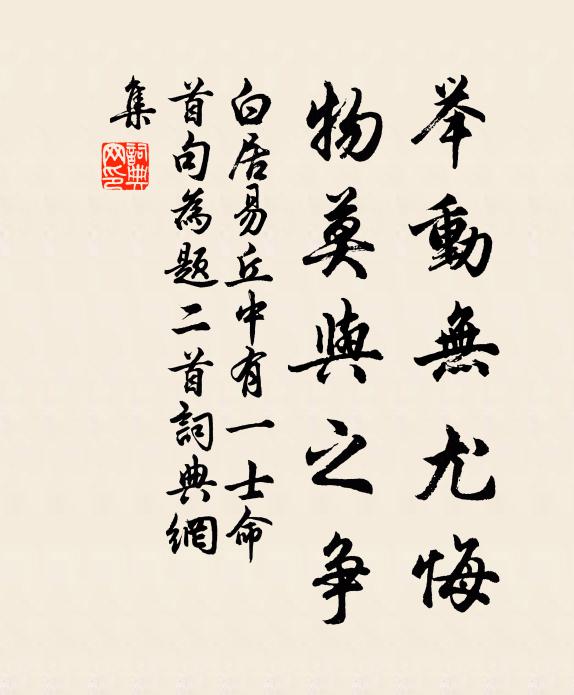 举動無尤悔
物莫與之争
白居易丘中有一士命
首句為題二首詞典網
集
詞典网印